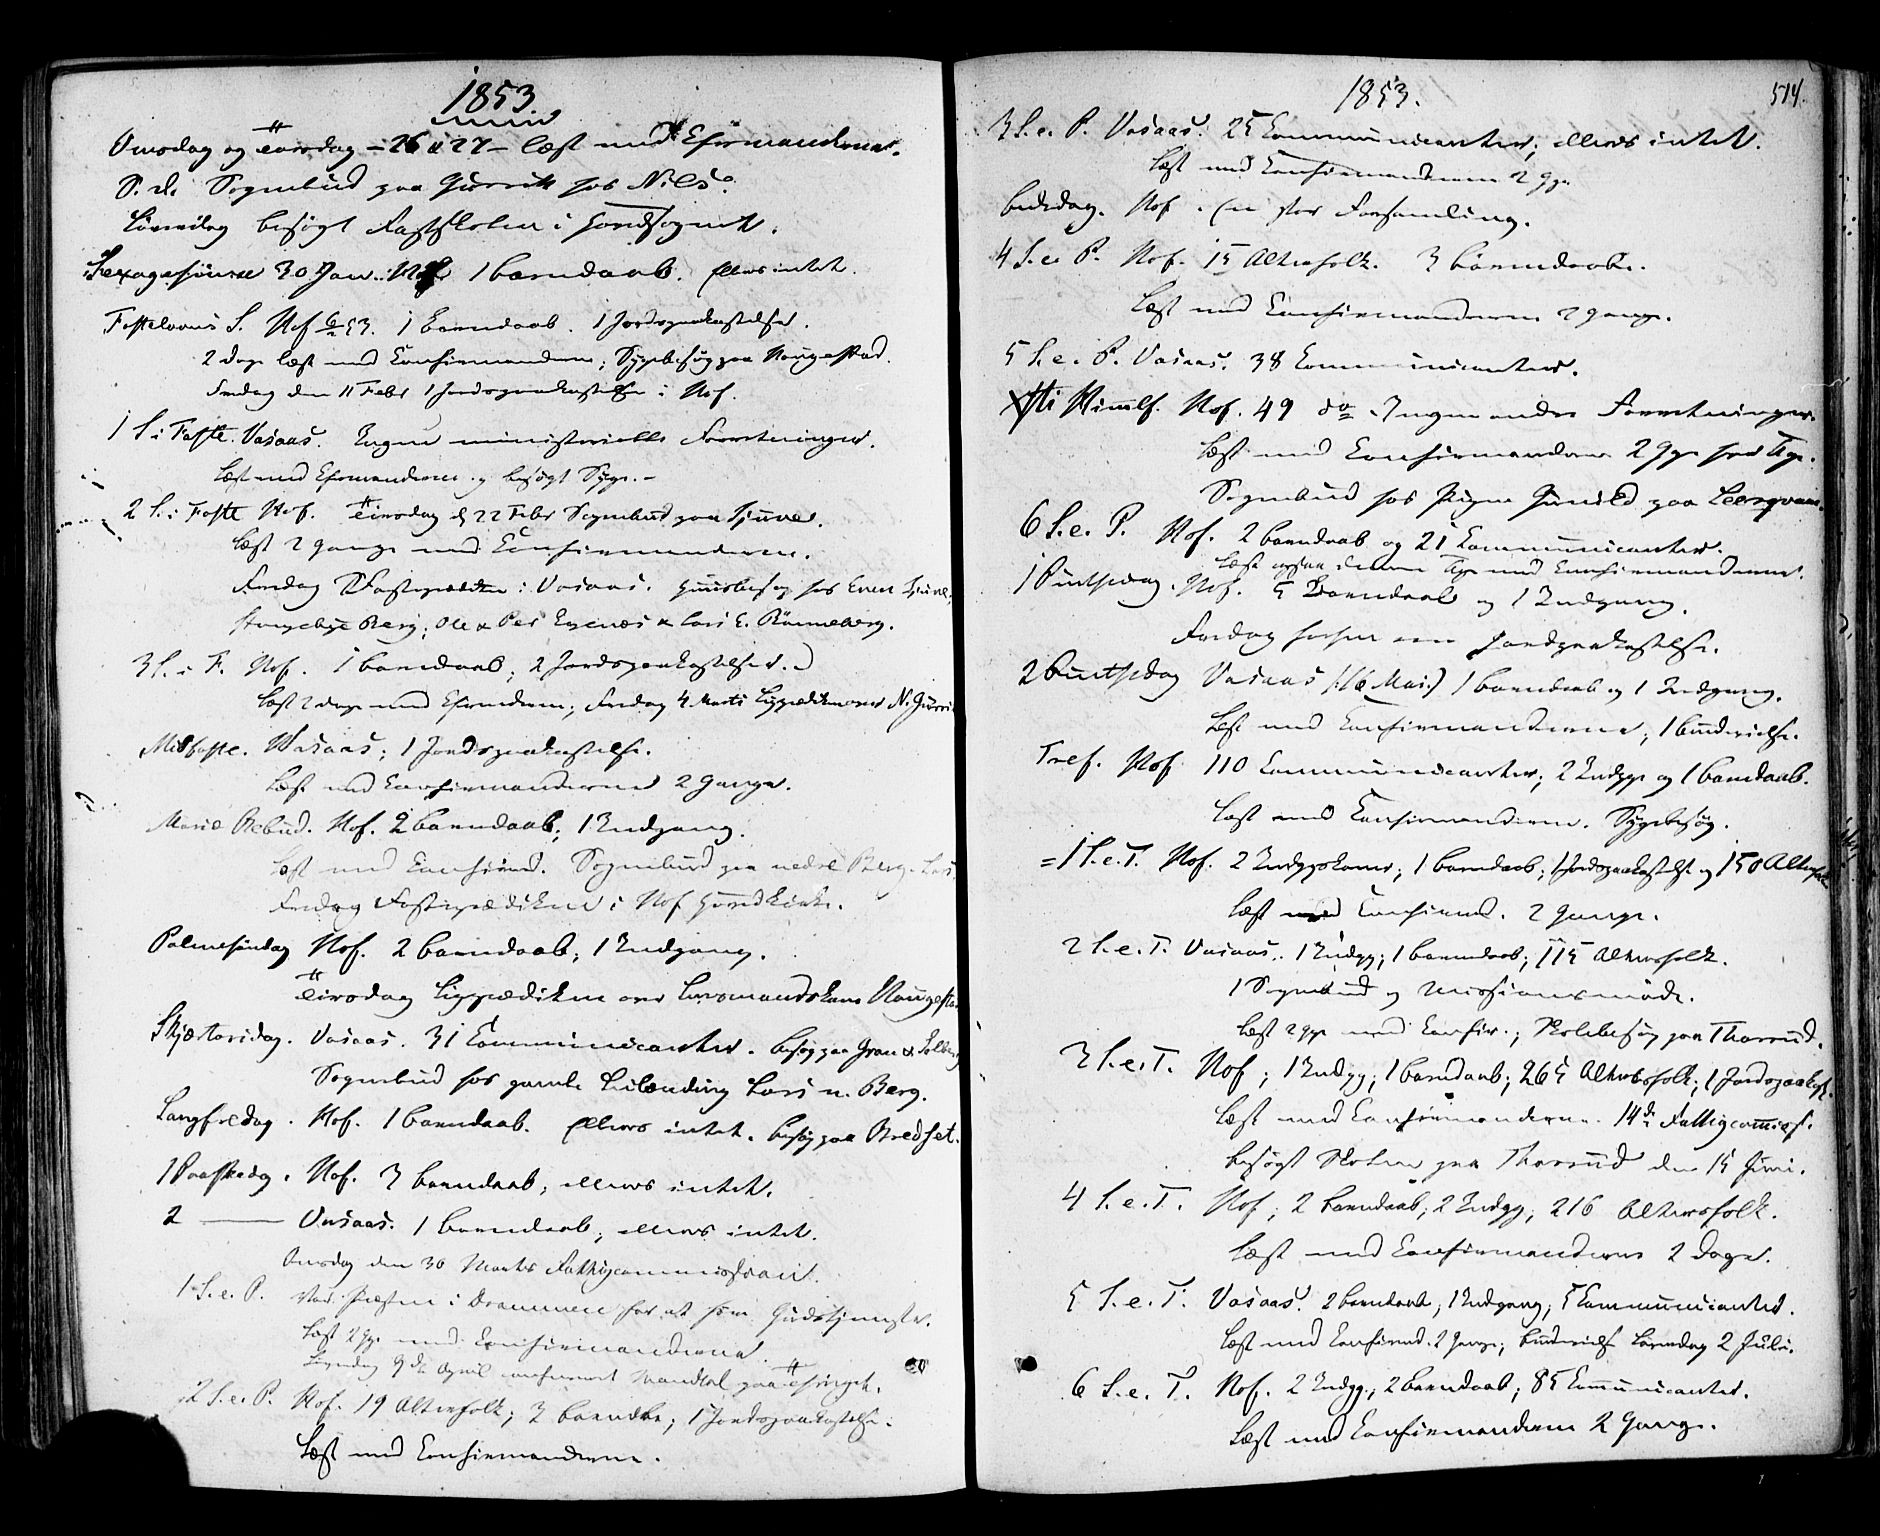 1853
Onsdag og Torsdag – 26 & 27 – læst med Cfirmanderne.
S. d. Sognebud paa hos Nils
Löverdag besögt Fastskolen i Hovedsognet.
Sexagesima 30 Jan. Hof 1 barnedaab. Ellers intet.
Fastelavns S. Hof 6/2 53. 1 barnedaab. 1 Jordspaakastelse.
2 Dage læst med Confirmanderne; Sygebesög paa Haugestad.
Fredag den 11 Febr 1 Jordspaakastelse i Hof.
1 S. i Faste. Vasaas. Ingen ministerielle Forretninger.
Læst med Cfirmanderne og besögt Syge. –
2 S. i Faste Hof. Tirsdag d 22 Febr Sognebud paa
Læst 2 Gange med Confirmanderne.
Fredag Fasteprædiken i Vasaas. Huusbesög hos Even
Berg, Ole & Per & Lars E. Rönneberg.
3 S. i F. Hof. 1 barnedaab; 2 Jordspaakastelser.
Læst 2 Dage med Cfirmderne; Fredag 4 Marts Ligprædiken over N.
Midfaste. Vasaas; 1 Jordspaakastelse.
Læst med Confirmanderne 2 Gange.
Mariæ Bebud. Hof. 2 barnedaab; 1 Indgang.
Læst med Confirmd. Sognebud paa nedre Berg. Lars
Fredag Fasteprædiken i Hof Hovedkirke.
Palmesöndag Hof. 2 barnedaab; 1 Indgang.
Tirsdag Ligprædiken over Lensmandskone Haugestad
Skjærtorsdag. Vasaas. 31 Communicanter. besög paa Gran &
Sognebud hos gamle Lars n. Berg.
Langfredag. Hof. 1 barnedaab. Ellers intet. besög paa Bredset.
1 Paaskedg. Hof. 3 barnedaab; ellers intet.
2 — Vasaas. 1 barnedaab; ellers intet.
Onsdag den 30 Marts Fattigcommission.
1 S. e. P. Var Præsten i Drammen for at Gudstjeneste.
Læst 2 Gge med Confirmanderne.
Löverdag 9 de April Mandtal paa Thinget.
2 S. e. P. Hof. 19 Altersfolk; 3 barnedbe; 1 Jordspaakastelse.
Læst med Confirmanderne.
1853.
514.
3 S. e. P. Vasaas. 25 Communicanter; ellers intet.
Læst med Confirmanderne 2 Gge.
bededag. Hof. En stor Forsamling.
4 S. e. P. Hof. 15 Altersfolk. 3 barnedaabe.
Læst med Confirmanderne 2 Gange.
5 S. e. P. Vasaas. 38 Communicanter.
Xsti Himlf. Hof. 49 do. Ingen andre Forretninger.
Læst med Confirmanderne 2 Gge
Sognebud hos Pigen Gunild paa
6 S. e. P. Hof. 2 barnedaab og 21 Communicanter.
Læst ogsaa denne Uge med Confirmanderne.
1 Pintsedag. Hof. 5 Barnedaab og 1 Indgang.
Fredag forhen en Jordpaakastelse.
2 Pintsedag Vasaas (: 16 Mai :) 1 barnedaab og 1 Indgang.
Læst med Confirmanderne; 1 brudevielse.
Tref. Hof 110 Communicanter; 2 Indgge og 1 barnedaab.
Læst med Confirmanderne. Sygebesög.
= 1 S. e. T. Hof. 2 Indggskoner; 1 barnedaab; 1 Jordspaakastelse og 150 Altersfolk
Læst med Confirmd. 2 Gange.
2 S. e. T. Vasaas. 1 Indgg; 1 barnedaab; 115 Altersfolk.
1 Sognebud og Missionsmöde.
Læst 2 Gge med Confir.; Skolebesög paa Thorrud.
3 S. e. T. Hof; 1 Indgg; 1 barnedaab; 265 Altersfolk; 1 Jordspaakst.
Læst med Confirmanderne. 14de Fattigcomiss.
besögt Skolen paa Thorrud den 15 Juni.
4 S. e. T. Hof; 2 barnedaab; 2 Indgg; 216 Altersfolk.
Læst med Confirmanderne 2 Dage.
5 S. e. T. Vasaas. 2 barnedaab; 1 Indgang; 5 Communicanter.
Læst med Confirmd. 2 Gange; brudevielse Löverdag 2 Juli.
6 S. e. T. Hof. 2 Indgg; 2 barnedaab; 85 Communicanter.
Læst med Confirmanderne 2 Gange.